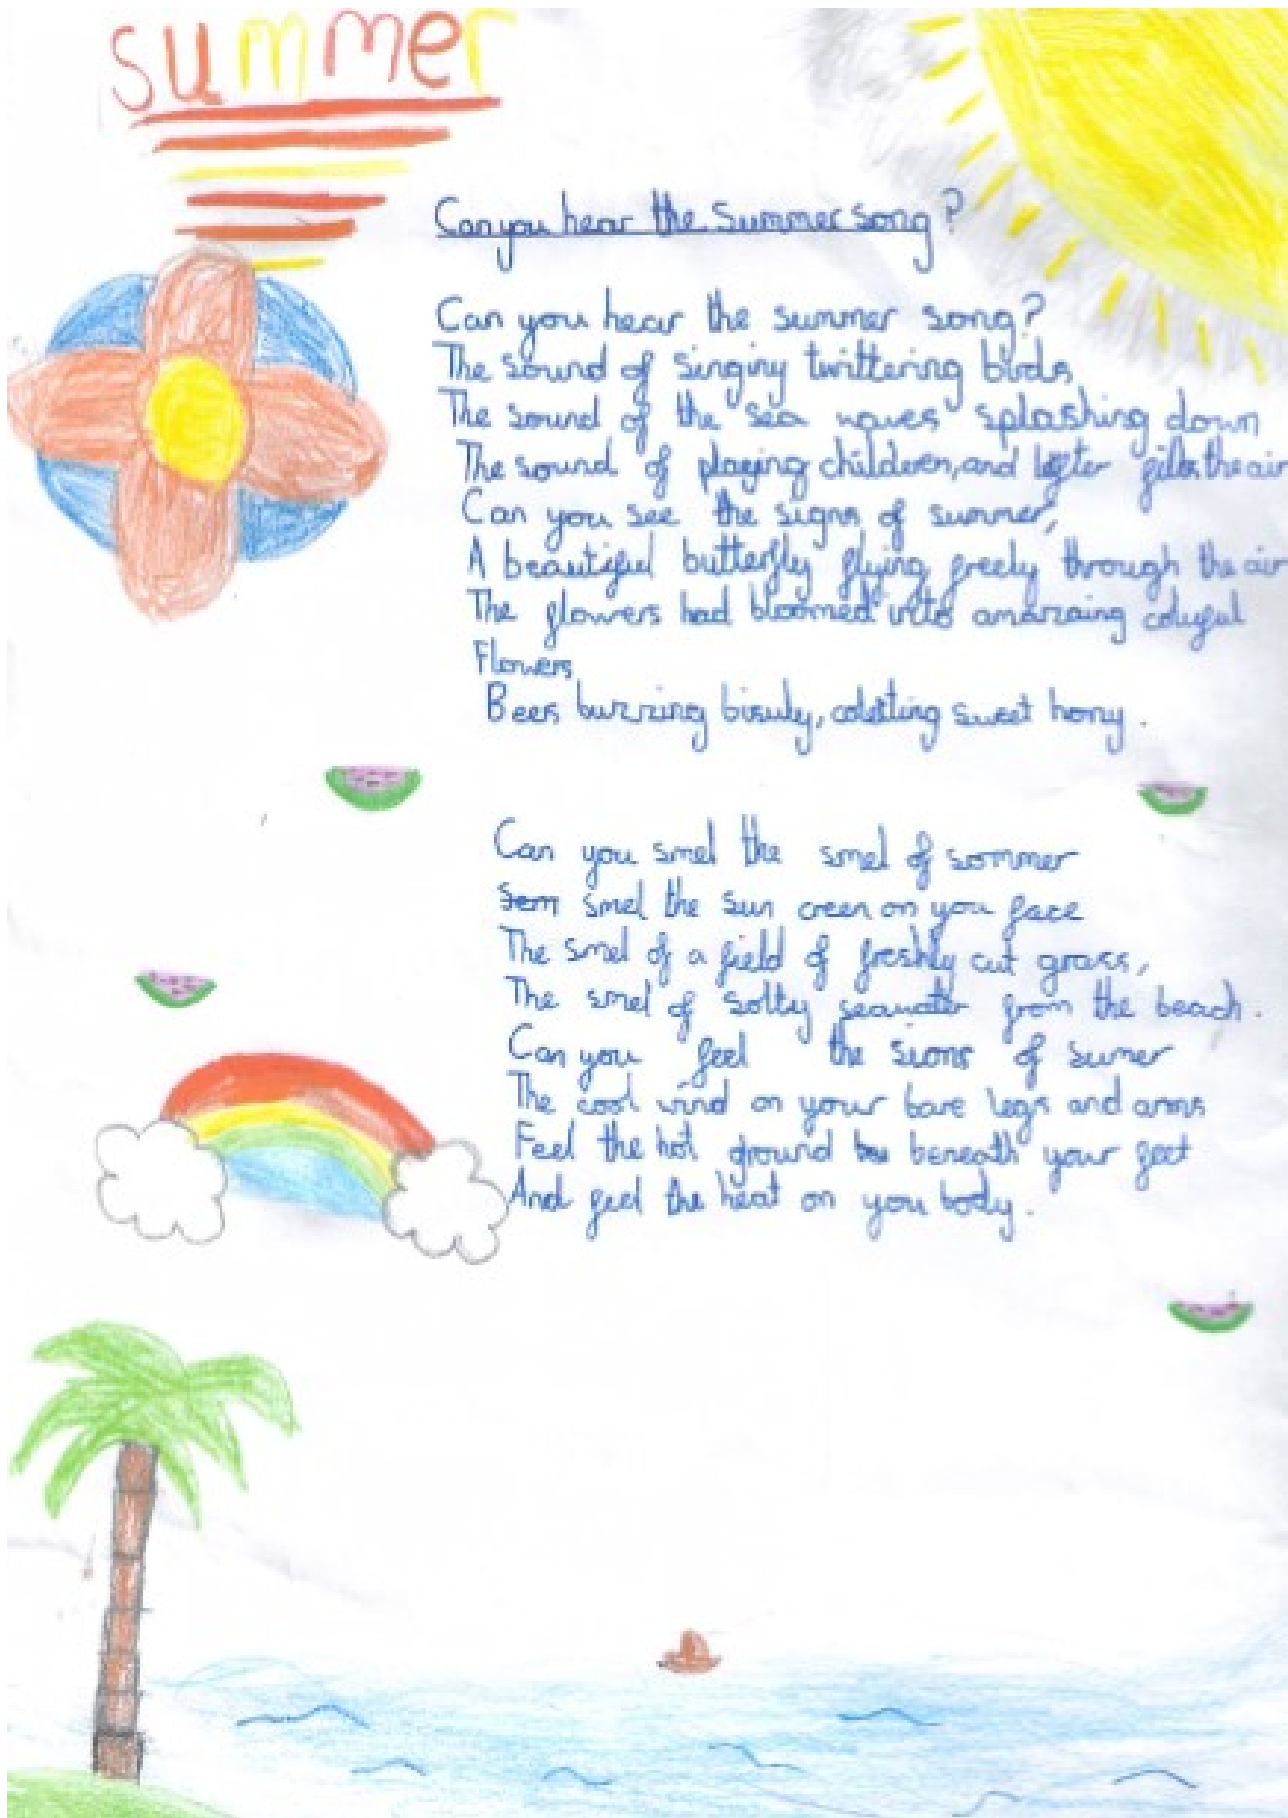 summer
Can you hear the Summer song?
Can you hear the summer song?
The sound of singiny twittering birds
The sound of the sea waves splashing down
The sound of playing children, and fills the air
Can you see the signs of summer,
A beautiful butterfly flying freely through the air
The flowers had bloomed into
Flowers
Bees buzzing sweet hony.
Can you smel the smel of sommer
smel the sun creen on you face
The smel of a field of freshly cut grass,
The smel of salty seawater from the beach.
Can you feel the sions of sumer
The cool wind on your bare legs and arms
Feel the hot ground beneath your feet
And feel the heat on you body.